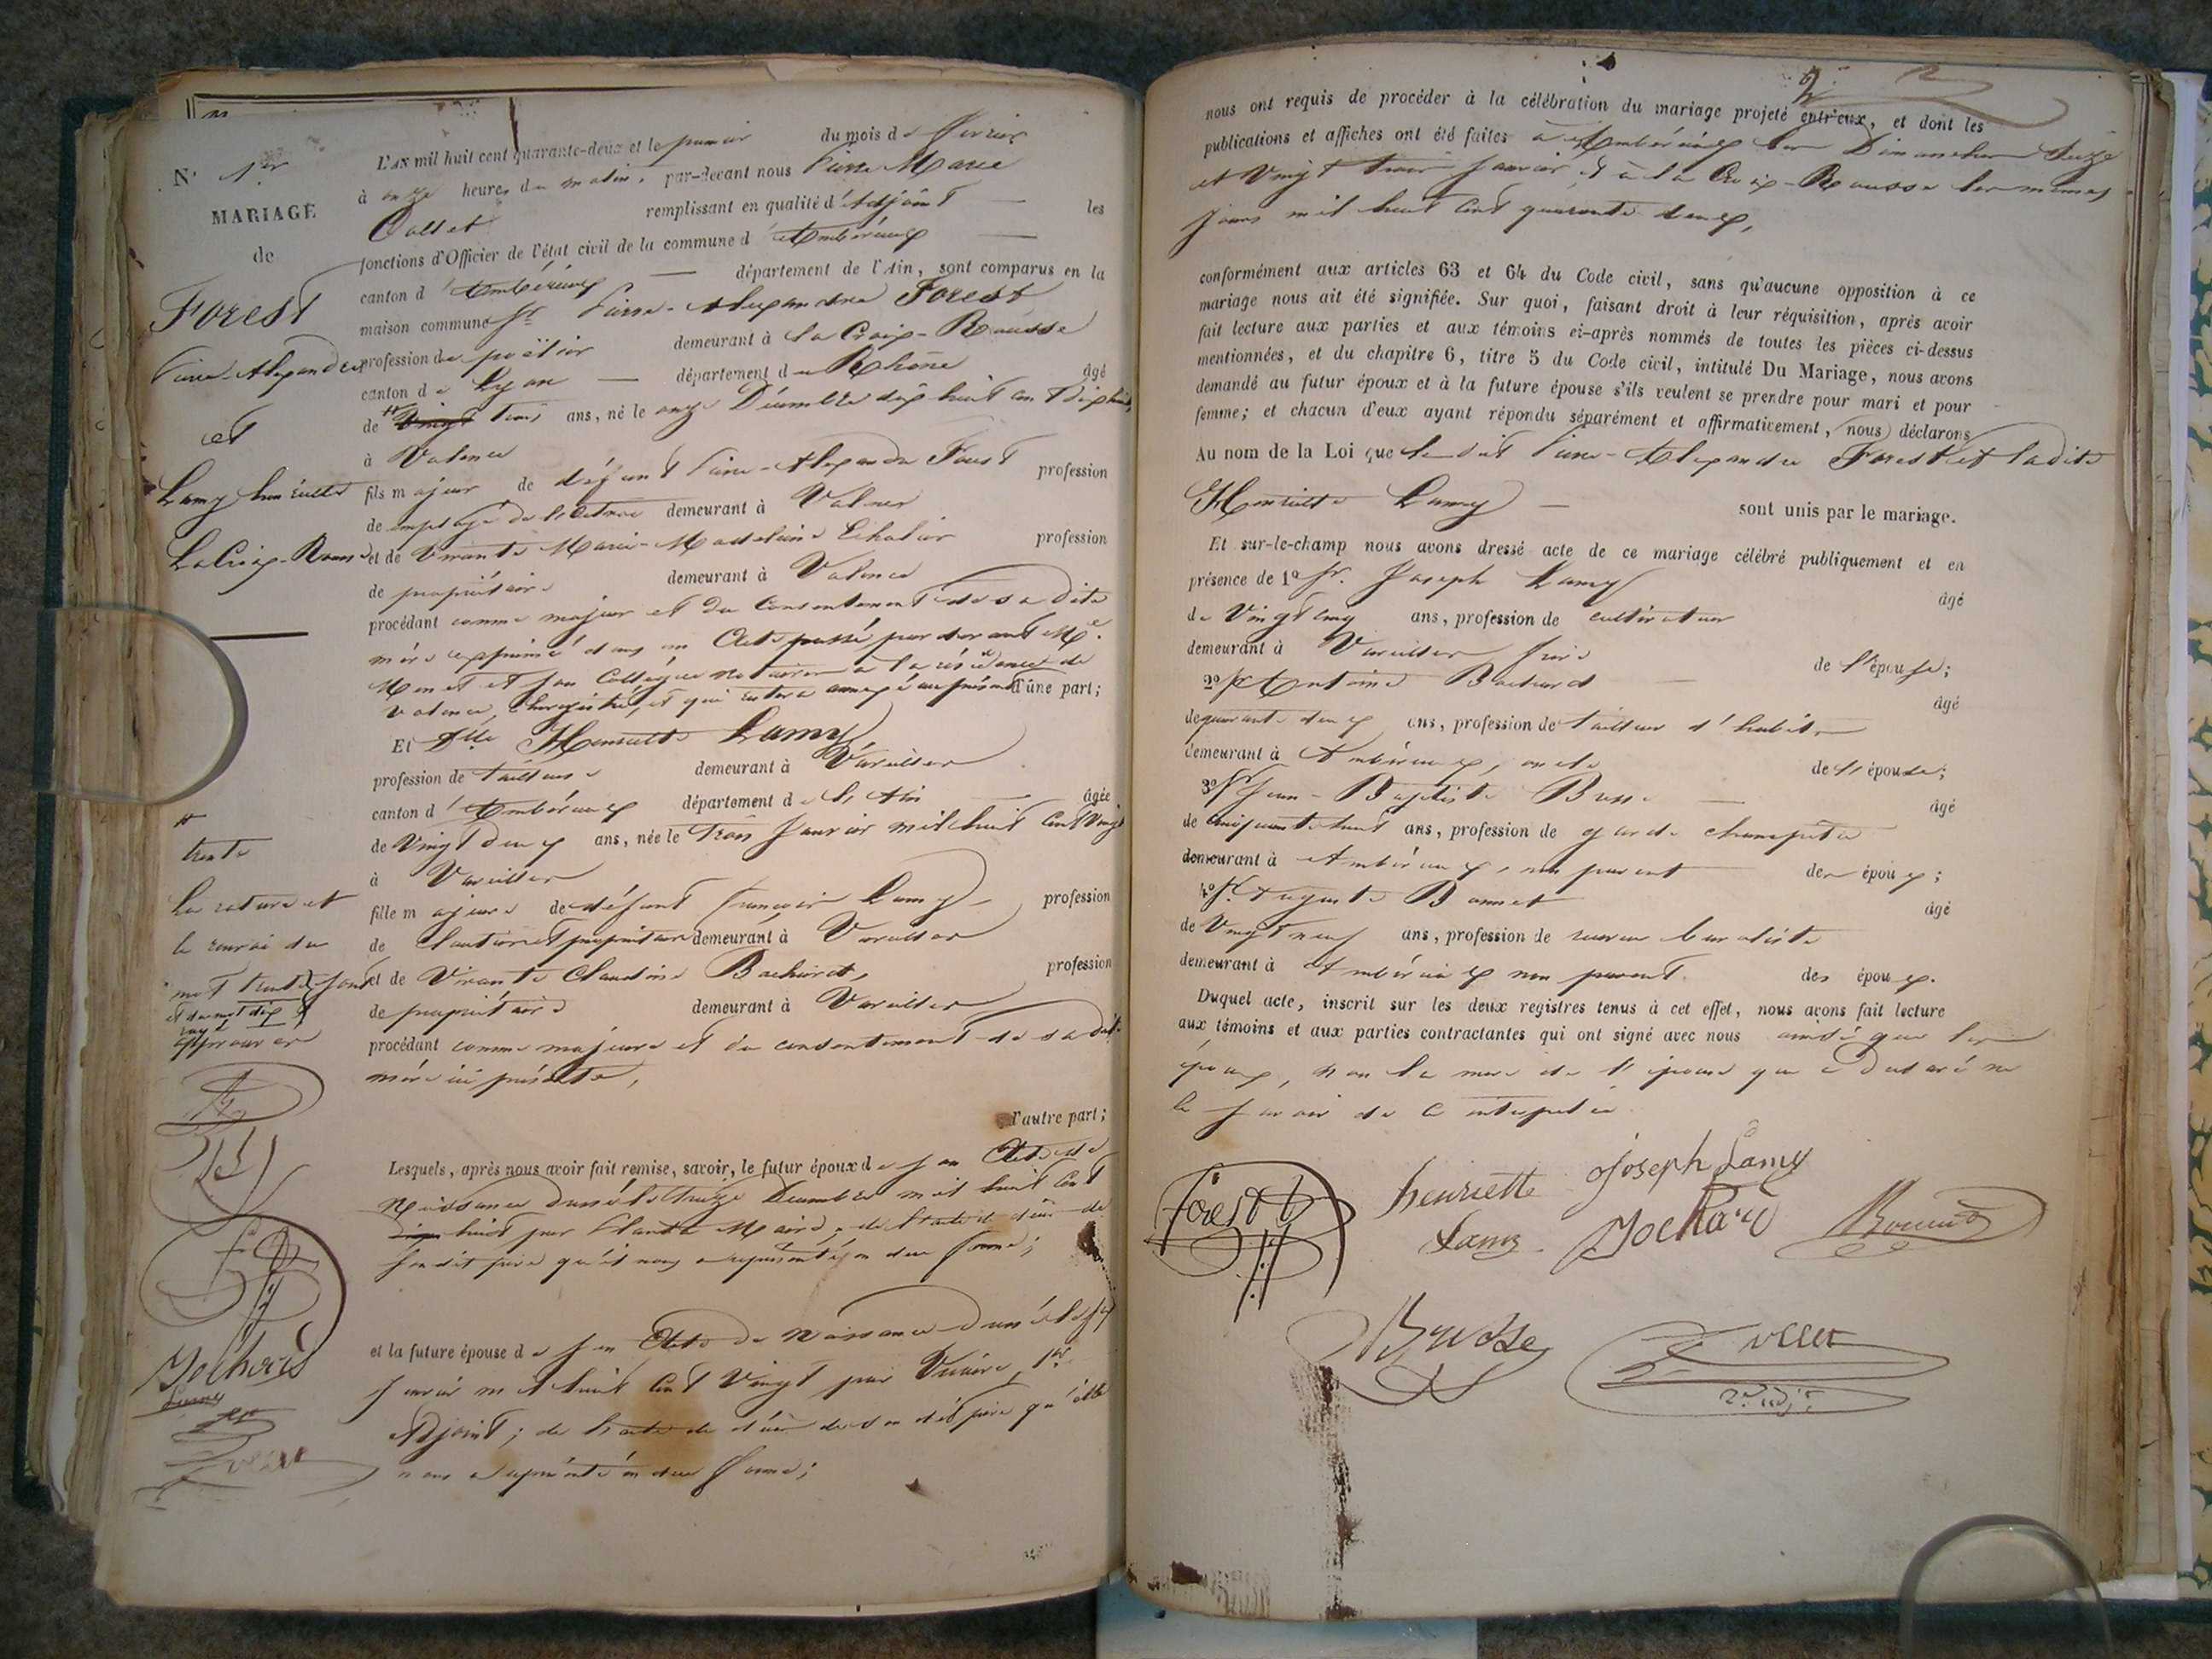 N° 1er
MARIAGE
de
Forest
Pierre-Alexandre
et
Lamy henriette
La Croix-Rousse
L'AN mil huit cent quarante-deux et le premier du mois de février
à onze heures du matin, par-devant nous Pierre Marie
Collet remplissant en qualité d'Adjoint les
fonctions d'Officier de l'état civil de la commune d'Ambérieux
canton d'Ambérieux département de l'Ain, sont comparus en la
maison commune Sr Pierre-Alexandre Forest
profession de poëlier demeurant à La Croix-Rousse
canton de Lyon département du Rhône âgé
de Vingt trois ans, né le onze Décembre dix huit cent dix huit
à Valence
fils majeur de défunt Pierre-Alexandre Forest profession
de employé de demeurant à Valence
et de Vivante Marie-Madelaine profession
de propriétaire demeurant à Valence
procédant comme majeur et du Consentement de sa dite
mère exprimé dans un Acte passé par devant Me
et son Collègue notaires à la résidence de
Valence, enregistré, et qui restera annexé au présent d'une part;
Et Dlle Henriette Lamy
profession de tailleuse demeurant à Vareilles
canton d'Ambérieux département de l'Ain âgée
de Vingt deux ans, née le trois Janvier mil huit Cent Vingt
à Vareilles
fille majeure de défunt françois Lamy profession
de et propriétaire demeurant à Vareilles
et de Vivante Claudine Bachard, profession
de propriétaire demeurant à Vareilles
procédant comme majeure et du consentement de sa dite
mère ici présente,
d'autre part;
trente
La rature et
le renvoi du
mot trente sont
et du mot dix
rayé
approuvés
Lesquels, après nous avoir fait remise, savoir, le futur époux de son Acte de
Naissance Dressé le treize Décembre mil huit Cent
dix huit par Planta Maire; de l'acte de décès de
son dit père qu'il nous a représenté en due forme;
et la future épouse de son Acte de Naissance Dressé le
Janvier mil huit Cent Vingt par 1er
Adjoint; de l'acte de décès de son dit père qu'elle
nous a représenté en due forme;
Lamy
Collet
2
nous ont requis de procéder à la célébration du mariage projeté entr'eux, et dont les
publications et affiches ont été faites à Ambérieux les Dimanches Seize
et Vingt trois Janvier, et à la Croix-Rousse les mêmes
jours mil huit Cent quarante deux,
conformément aux articles 63 et 64 du Code civil, sans qu'aucune opposition à ce
mariage nous ait été signifiée. Sur quoi, faisant droit à leur réquisition, après avoir
fait lecture aux parties et aux témoins ci-après nommés de toutes les pièces ci-dessus
mentionnées, et du chapitre 6, titre 5 du Code civil, intitulé Du Mariage, nous avons
demandé au futur époux et à la future épouse s'ils veulent se prendre pour mari et pour
femme; et chacun d'eux ayant répondu séparément et affirmativement, nous déclarons
Au nom de la Loi que le dit Pierre-Alexandre Forest et la dite
Henriette Lamy sont unis par le mariage.
Et sur-le-champ nous avons dressé acte de ce mariage célébré publiquement et en
présence de 1° Sr. Joseph Lamy âgé
de Vingt cinq ans, profession de cultivateur
demeurant à Vareilles frère de l'épouse;
2° Sr Antoine Bachard âgé
de quarante deux ans, profession de tailleur d'habits
demeurant à Ambérieux, oncle de l'épouse;
3° Sr Jean-Baptiste âgé
de cinquante huit ans, profession de garde champêtre
demeurant à Ambérieux, non parent des époux;
4° Sr. Auguste Bonnet âgé
de Vingt neuf ans, profession de receveur buraliste
demeurant à Ambérieux non parent des époux.
Duquel acte, inscrit sur les deux registres tenus à cet effet, nous avons fait lecture
aux témoins et aux parties contractantes qui ont signé avec nous ainsi que les
époux, non la mère de l'épouse qui a déclaré ne
le savoir de ce interpellée.
Forest
henriette
Lamy
Joseph Lamy
Collet